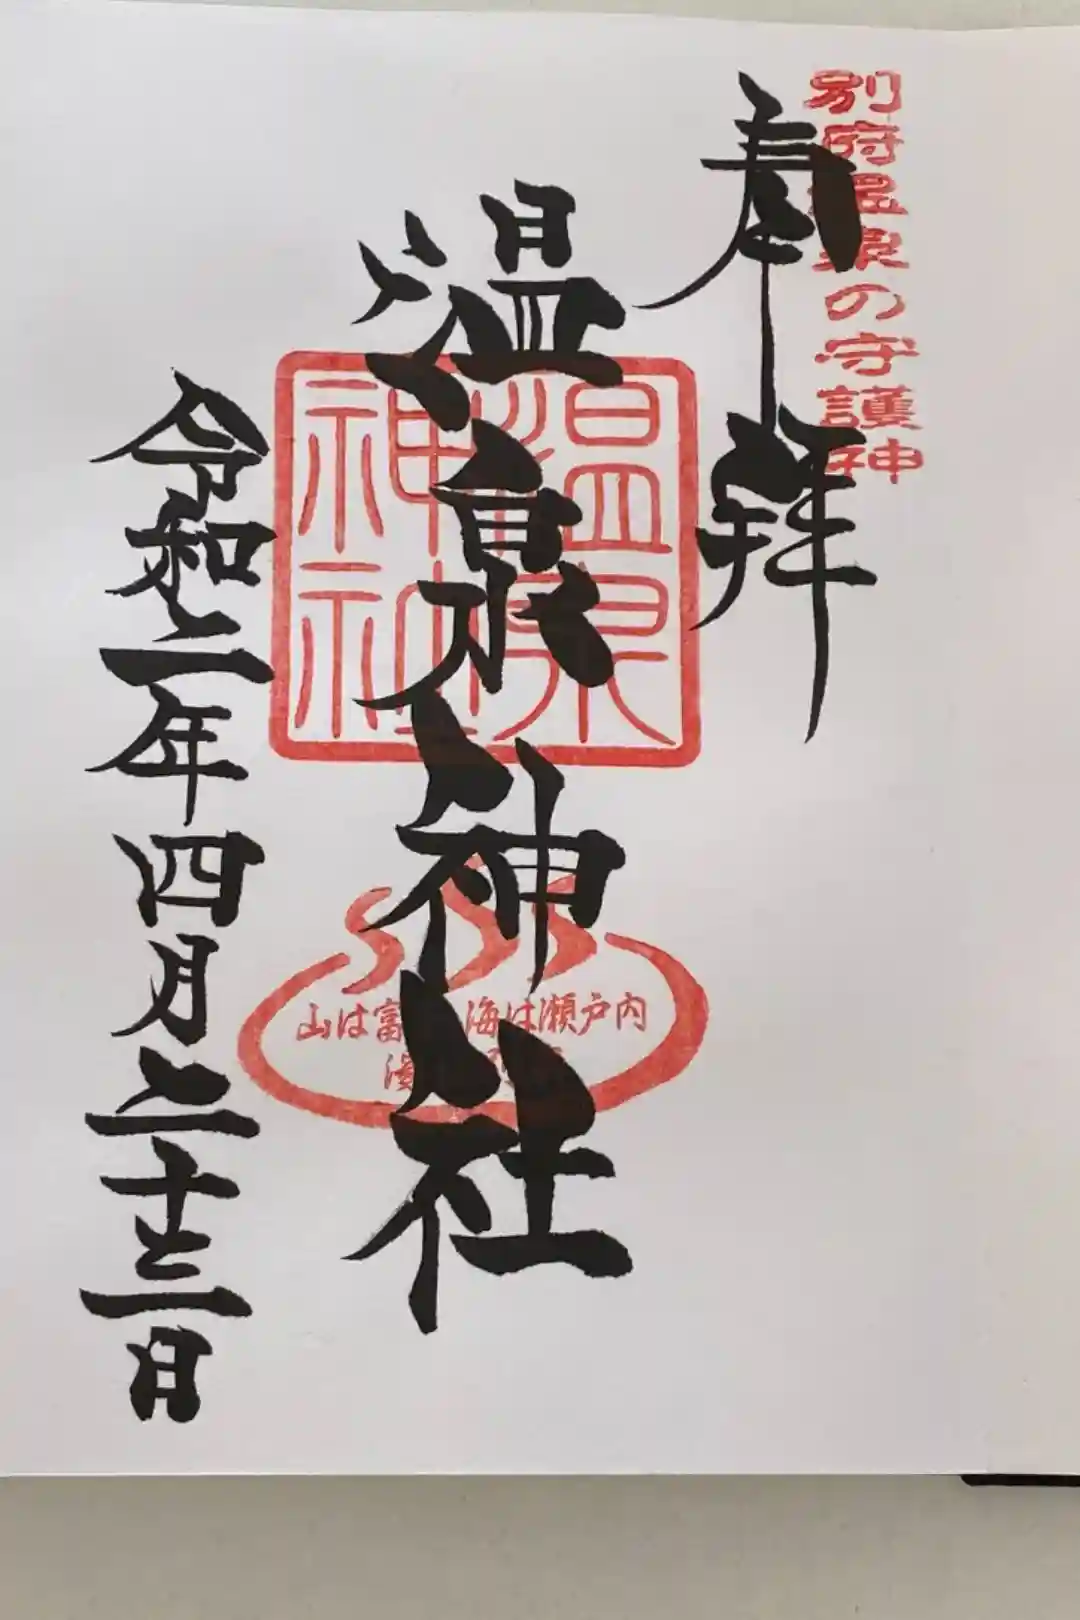 別府温泉の守護神
奉拝
温泉神社
温泉
神社
山は富 海は瀬戸内
湯
令和二年四月二十三日